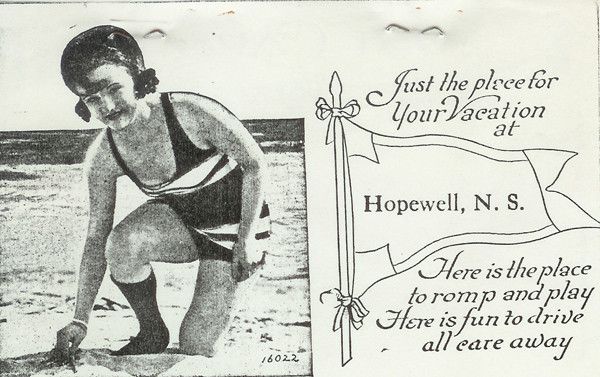 Just the place for
Your Vacation
at
Hopewell, N. S.
Here is the place
to romp and play
Here is fun to drive
all care away
16022